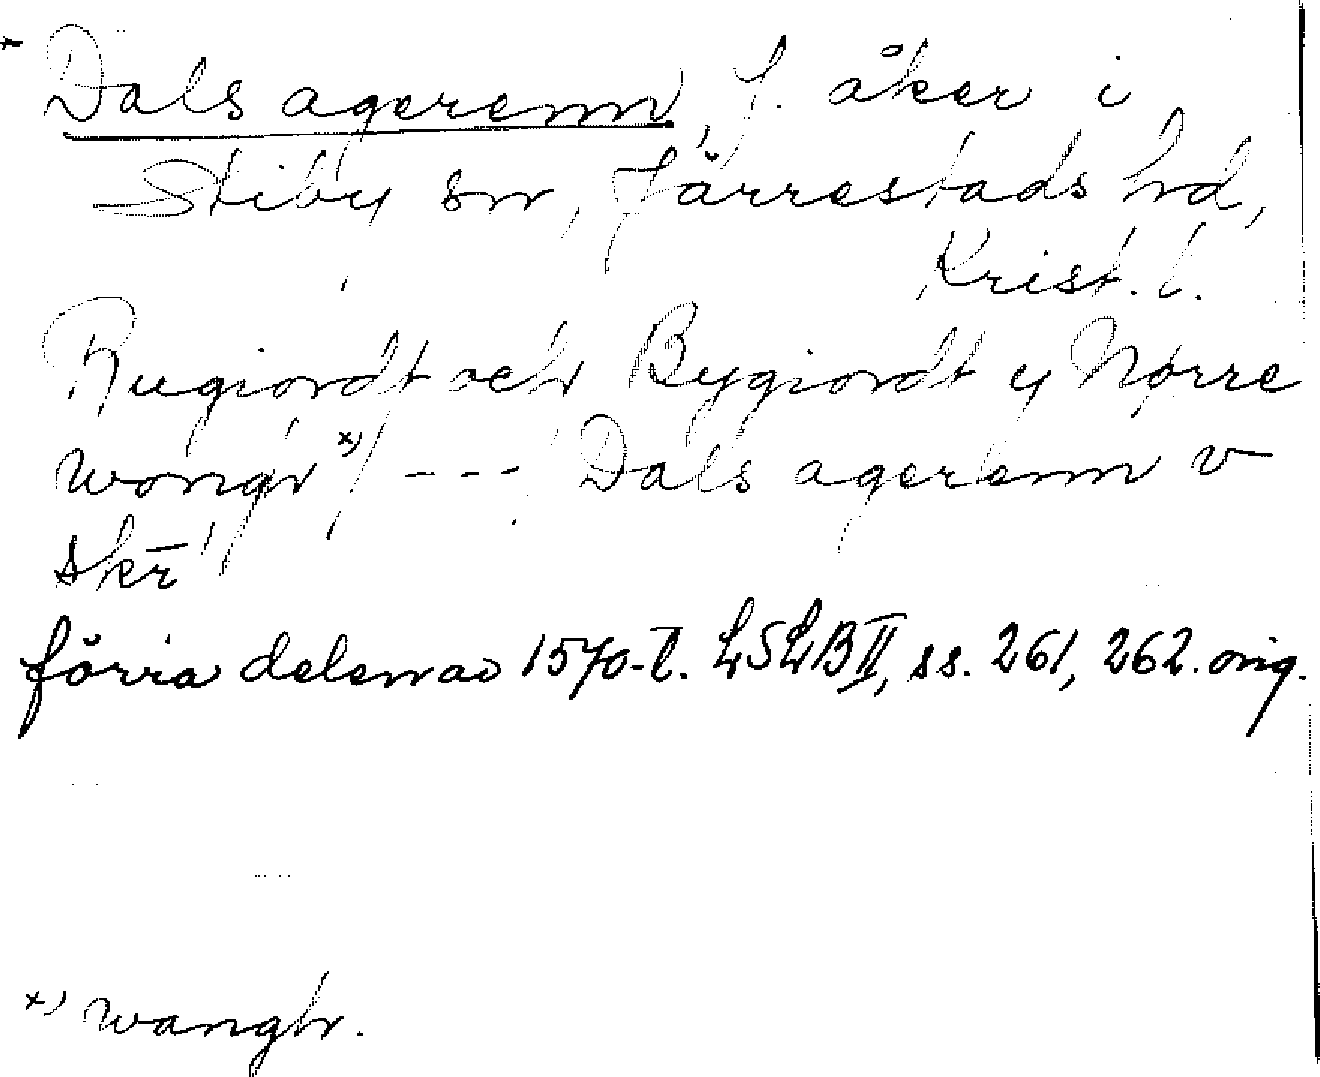 Dals agerenn, f. åker i
Stiby sn, Järrestads hd,
Krist. l.
Rugiordt och Bygiordt y Nørre
wongh x) / --- Dals agerenn v
skr̄
förra delen av 1570-t. LSLB II, ss. 261, 262. orig.
x) wangh.